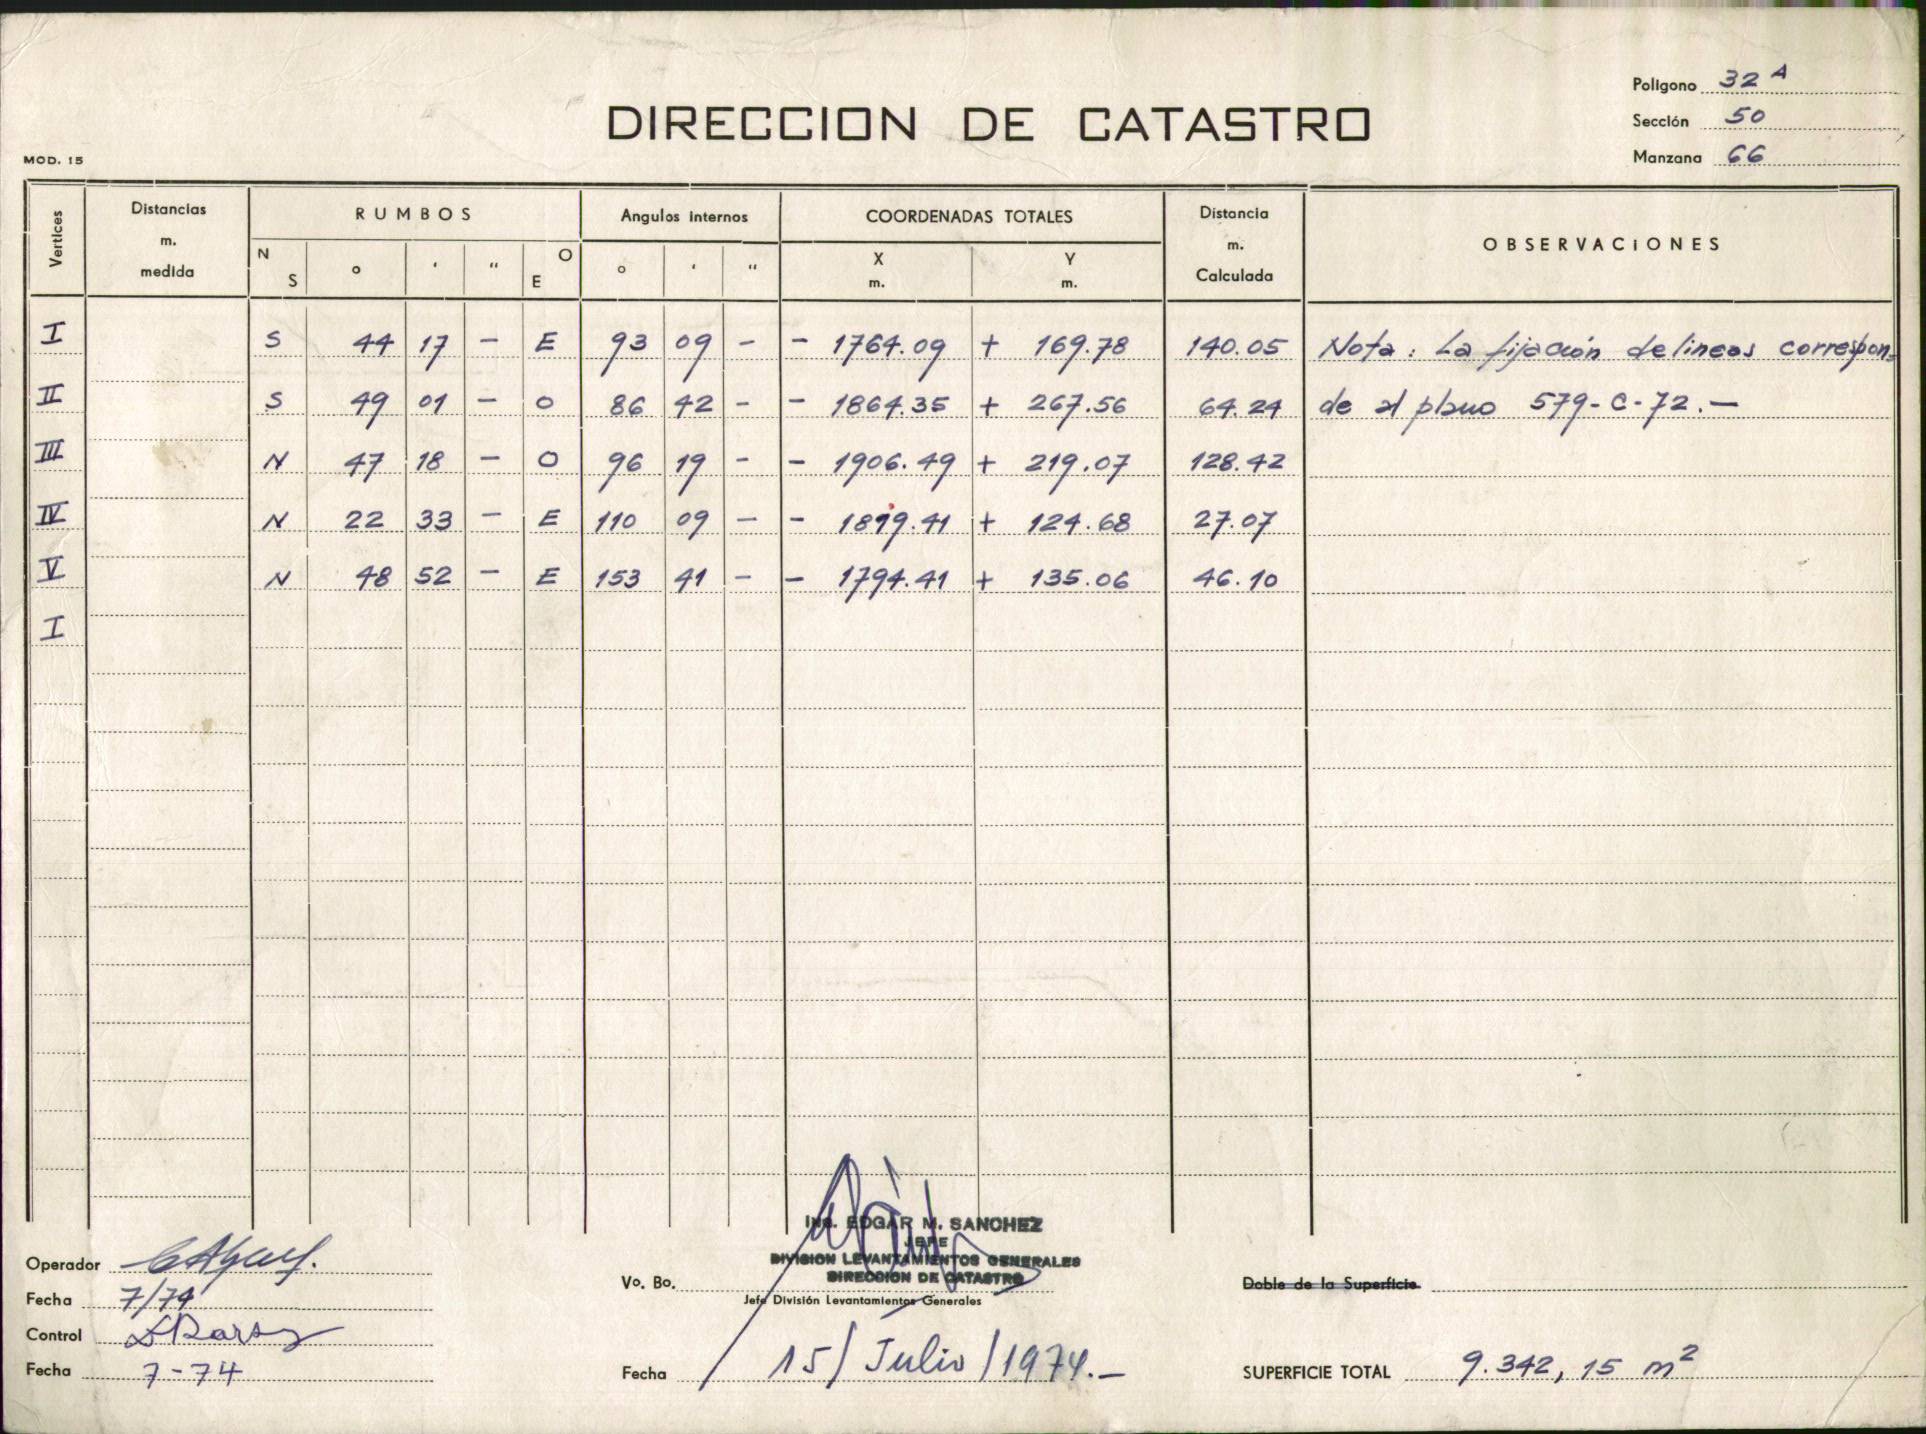 Poligono 32 A
DIRECCION DE CATASTRO
Sección 50
MOD. 15
Manzana 66
Vertices Distancias m. medida RUMBOS N S ° ' " O E Angulos internos ° ' " COORDENADAS TOTALES X m. Y m. Distancia m. Calculada OBSERVACIONES
I S 44 17 - E 93 09 - - 1764.09 + 169.78 140.05 Nota: La fijación de lineas correspon-
II S 49 01 - O 86 42 - - 1864.35 + 267.56 64.24 de al plano 579-C-72.-
III N 47 18 - O 96 19 - - 1906.49 + 219.07 128.42
IV N 22 33 - E 110 09 - - + 124.68 27.07
V N 48 52 - E 153 41 - - 1794.41 + 135.06 46.10
I
ING. EDGAR M. SANCHEZ
JEFE
DIVISION LEVANTAMIENTOS GENERALES
DIRECCION DE CATASTRO
Operador
Vo. Bo.
Doble de la Superficie
Jefe División Levantamientos Generales
Fecha 7/74
Control
Fecha 7-74
Fecha 15/Julio/1974.-
SUPERFICIE TOTAL 9.342,15 m²